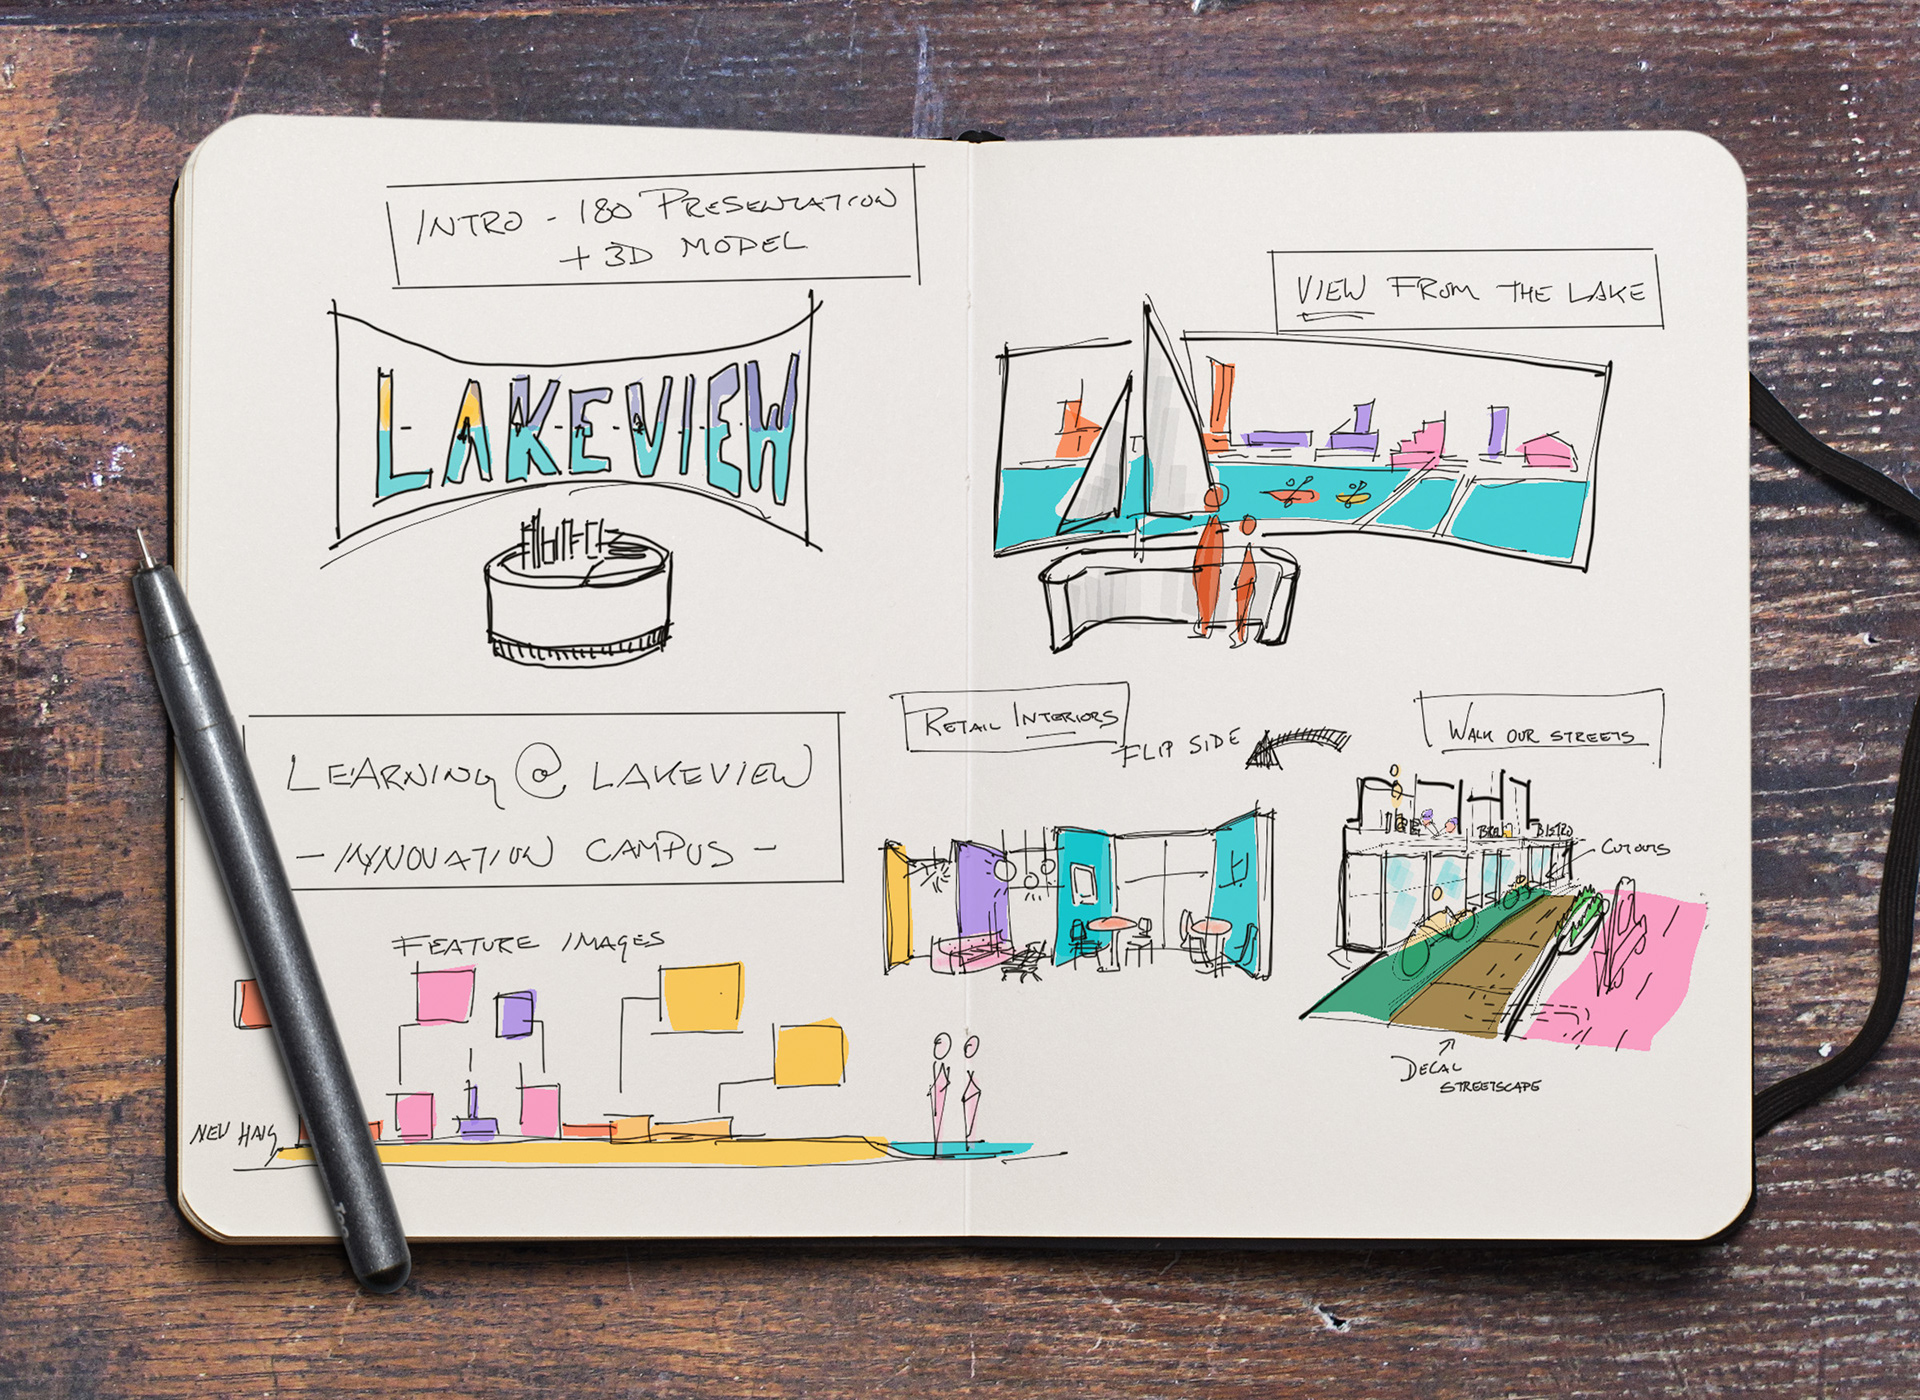 INTRO - 180 PRESENTATION
+ 3D MODEL
LAKEVIEW
VIEW FROM THE LAKE
LEARNING @ LAKEVIEW
- INNOVATION CAMPUS -
FEATURE IMAGES
NEW HAIG
RETAIL INTERIORS
FLIP SIDE
WALK OUR STREETS
BISTRO
DECAL
STREETSCAPE